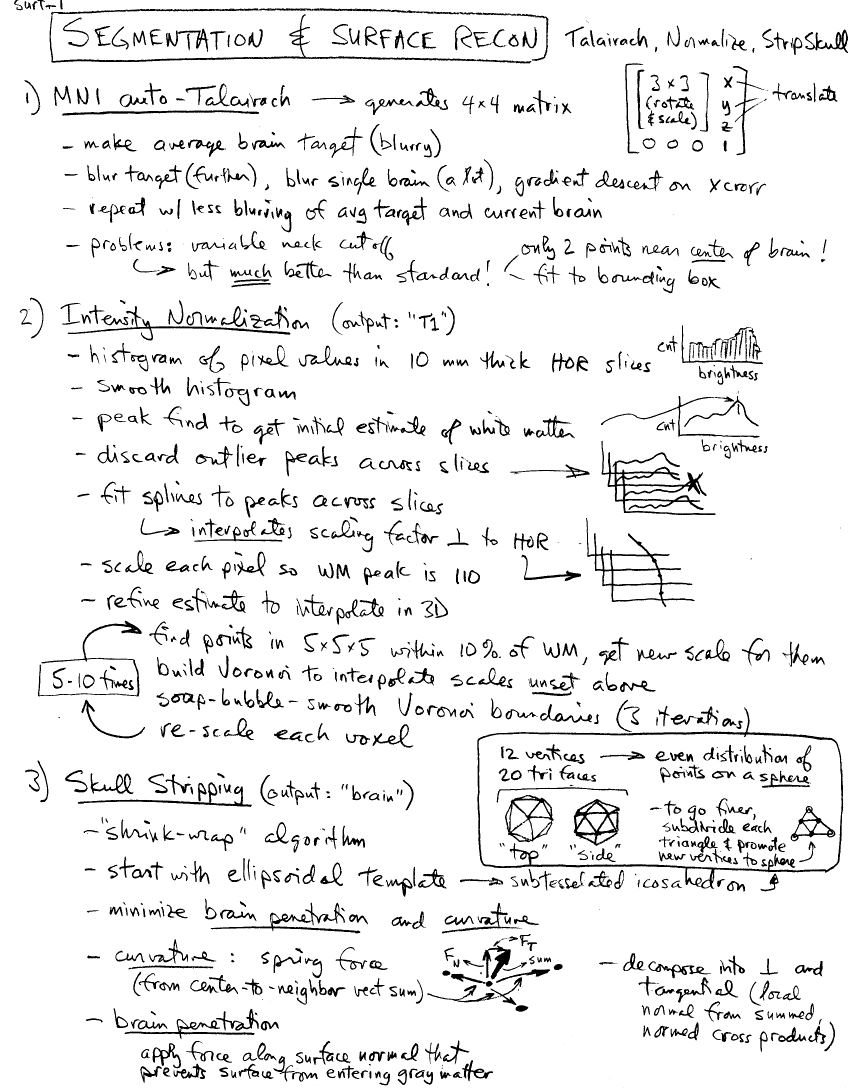 surf-1
SEGMENTATION & SURFACE RECON Talairach, Normalize, StripSkull
1) MNI auto-Talairach → generates 4×4 matrix
3×3 x
(rotate y
& scale) z
0 0 0 1
translate
- make average brain target (blurry)
- blur target (further), blur single brain (a lot), gradient descent on xcorr
- repeat w/ less blurring of avg target and current brain
- problems: variable neck cutoff
↳ but much better than standard!
only 2 points near center of brain!
fit to bounding box
2) Intensity Normalization (output: "T1")
- histogram of pixel values in 10 mm thick HOR slices
cnt
brightness
- smooth histogram
- peak find to get initial estimate of white matter
cnt
brightness
- discard outlier peaks across slices →
- fit splines to peaks across slices
↳ interpolates scaling factor ⊥ to HOR
- scale each pixel so WM peak is 110
- refine estimate to interpolate in 3D
find points in 5×5×5 within 10% of WM, get new scale for them
5-10 times
build Voronoi to interpolate scales unset above
soap-bubble-smooth Voronoi boundaries (3 iterations)
re-scale each voxel
12 vertices → even distribution of
20 tri faces points on a sphere
"top" "side"
- to go finer,
subdivide each
triangle & promote
new vertices to sphere
3) Skull Stripping (output: "brain")
- "shrink-wrap" algorithm
- start with ellipsoidal template → subtesselated icosahedron
- minimize brain penetration and curvature
- curvature: spring force
(from center-to-neighbor vect sum)
F_N F_T
sum
- decompose into ⊥ and
tangential (local
normal from summed,
normed cross products)
- brain penetration
apply force along surface normal that
prevents surface from entering gray matter